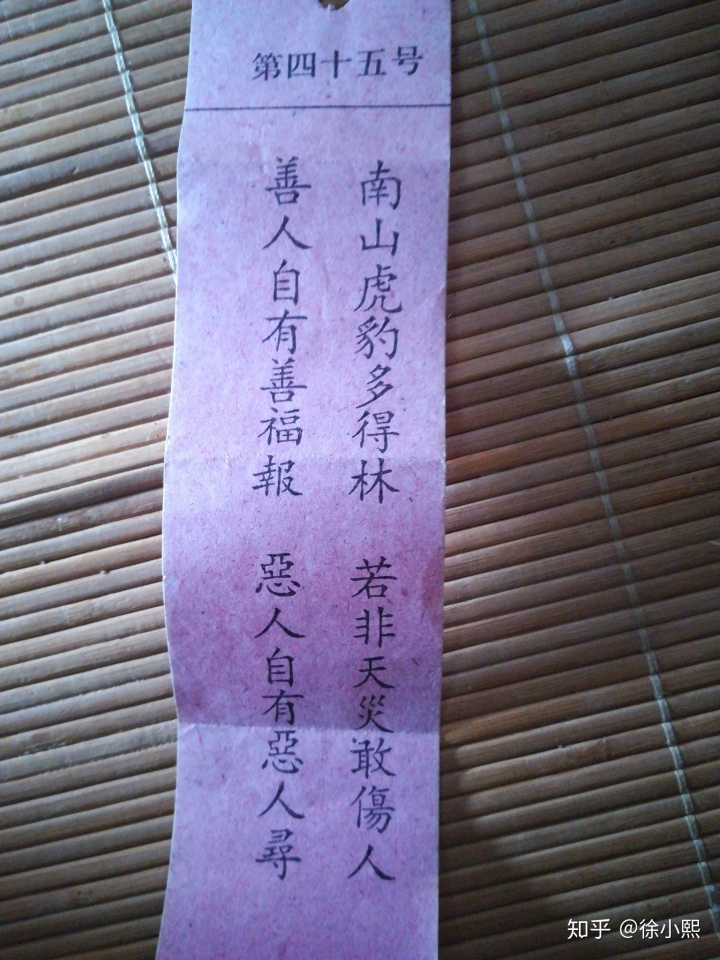 第四十五号
南山虎豹多得林 若非天災敢傷人
善人自有善福報 惡人自有惡人尋
知乎 @徐小熙